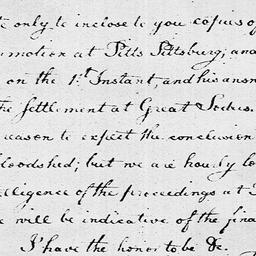 only to inclose to you copies of
motion at Pitts Pittsburg, and
on the 1st Instant, and his answ
the settlement at Great
eason to expect the conclusion
bloodshed; but we are hourly lo
elligence of the proceedings at
e will be indicative of the fina
I have the honor to be &c.